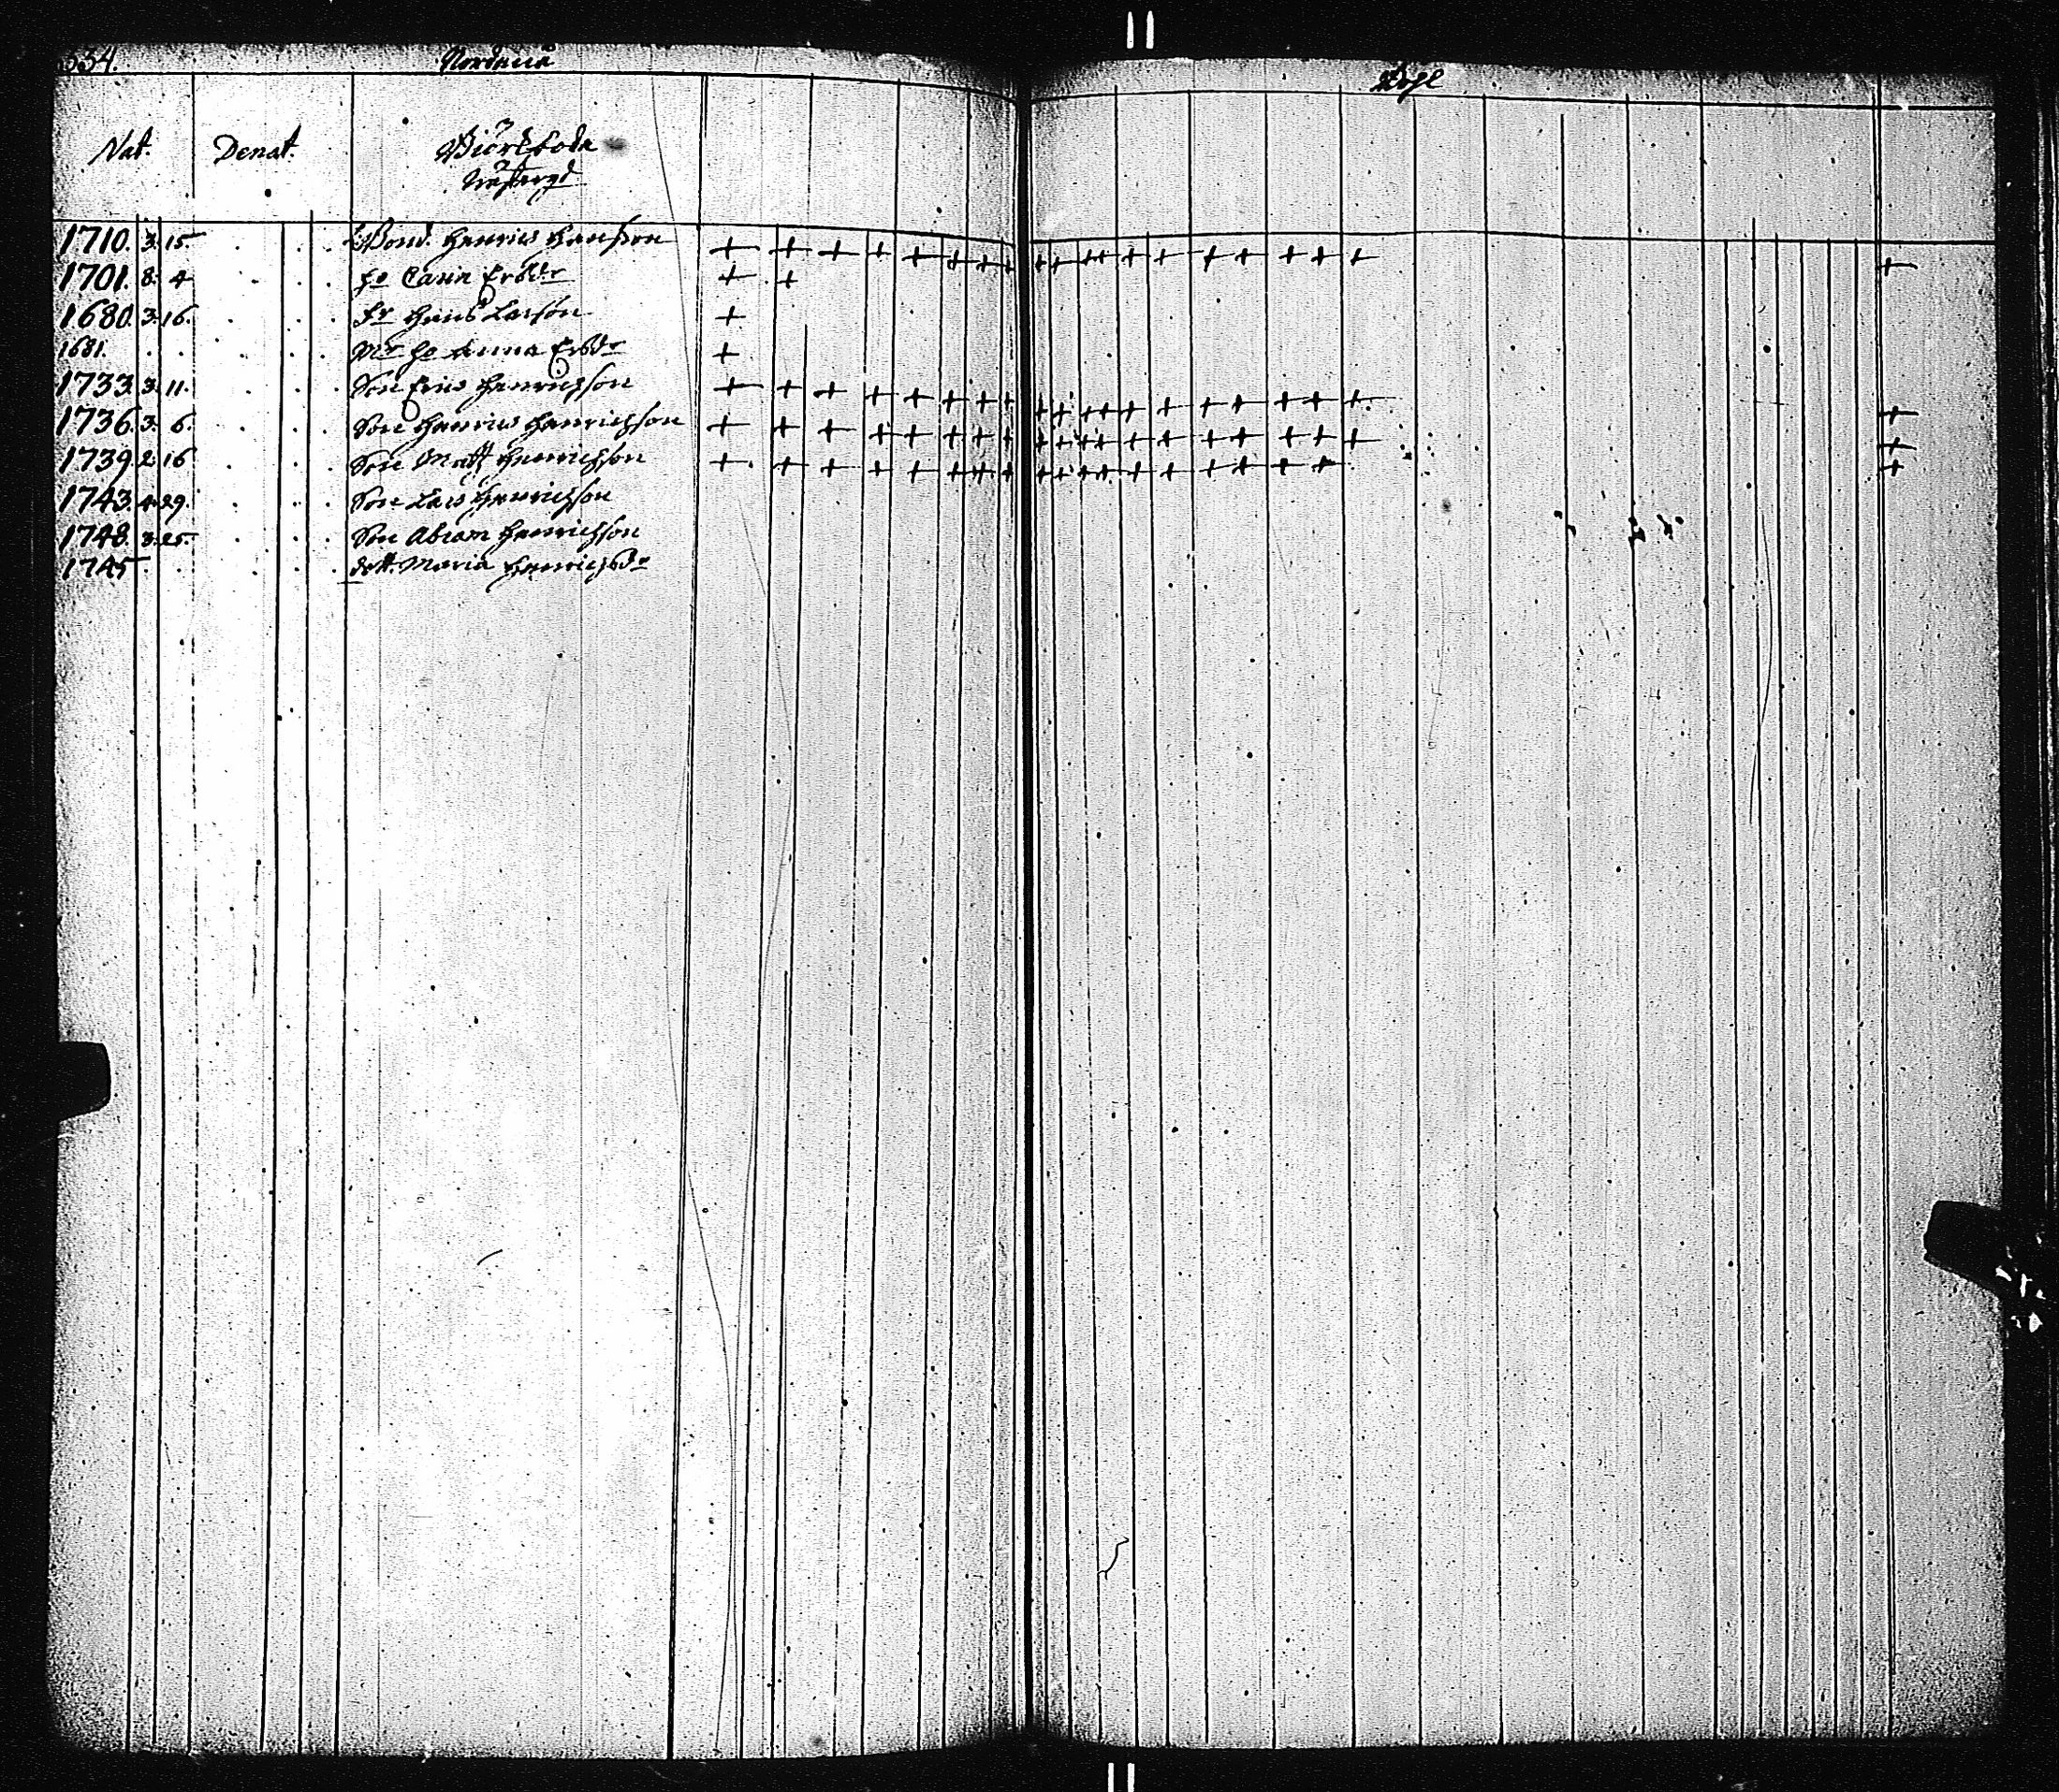 334.
Nordanå
Nat. Denat. Biörkboda
1710. 3. 15. Bond. Henric Hansson
1701. 8. 4 ho Carin Ersdr
1680. 3. 16. fr Hans Larson
1681. Mr ho Anna Ersdr
1733. 3. 11. Son Eric Henrichson
1736. 3. 6. Son Henric Henrichson
1739. 2. 16 Son Matts Henrichson
1743. 4. 29. Son Lars Henrichson
1748. 3. 25. Son Abram Henrichson
1745 dott. Maria Henrichsdr